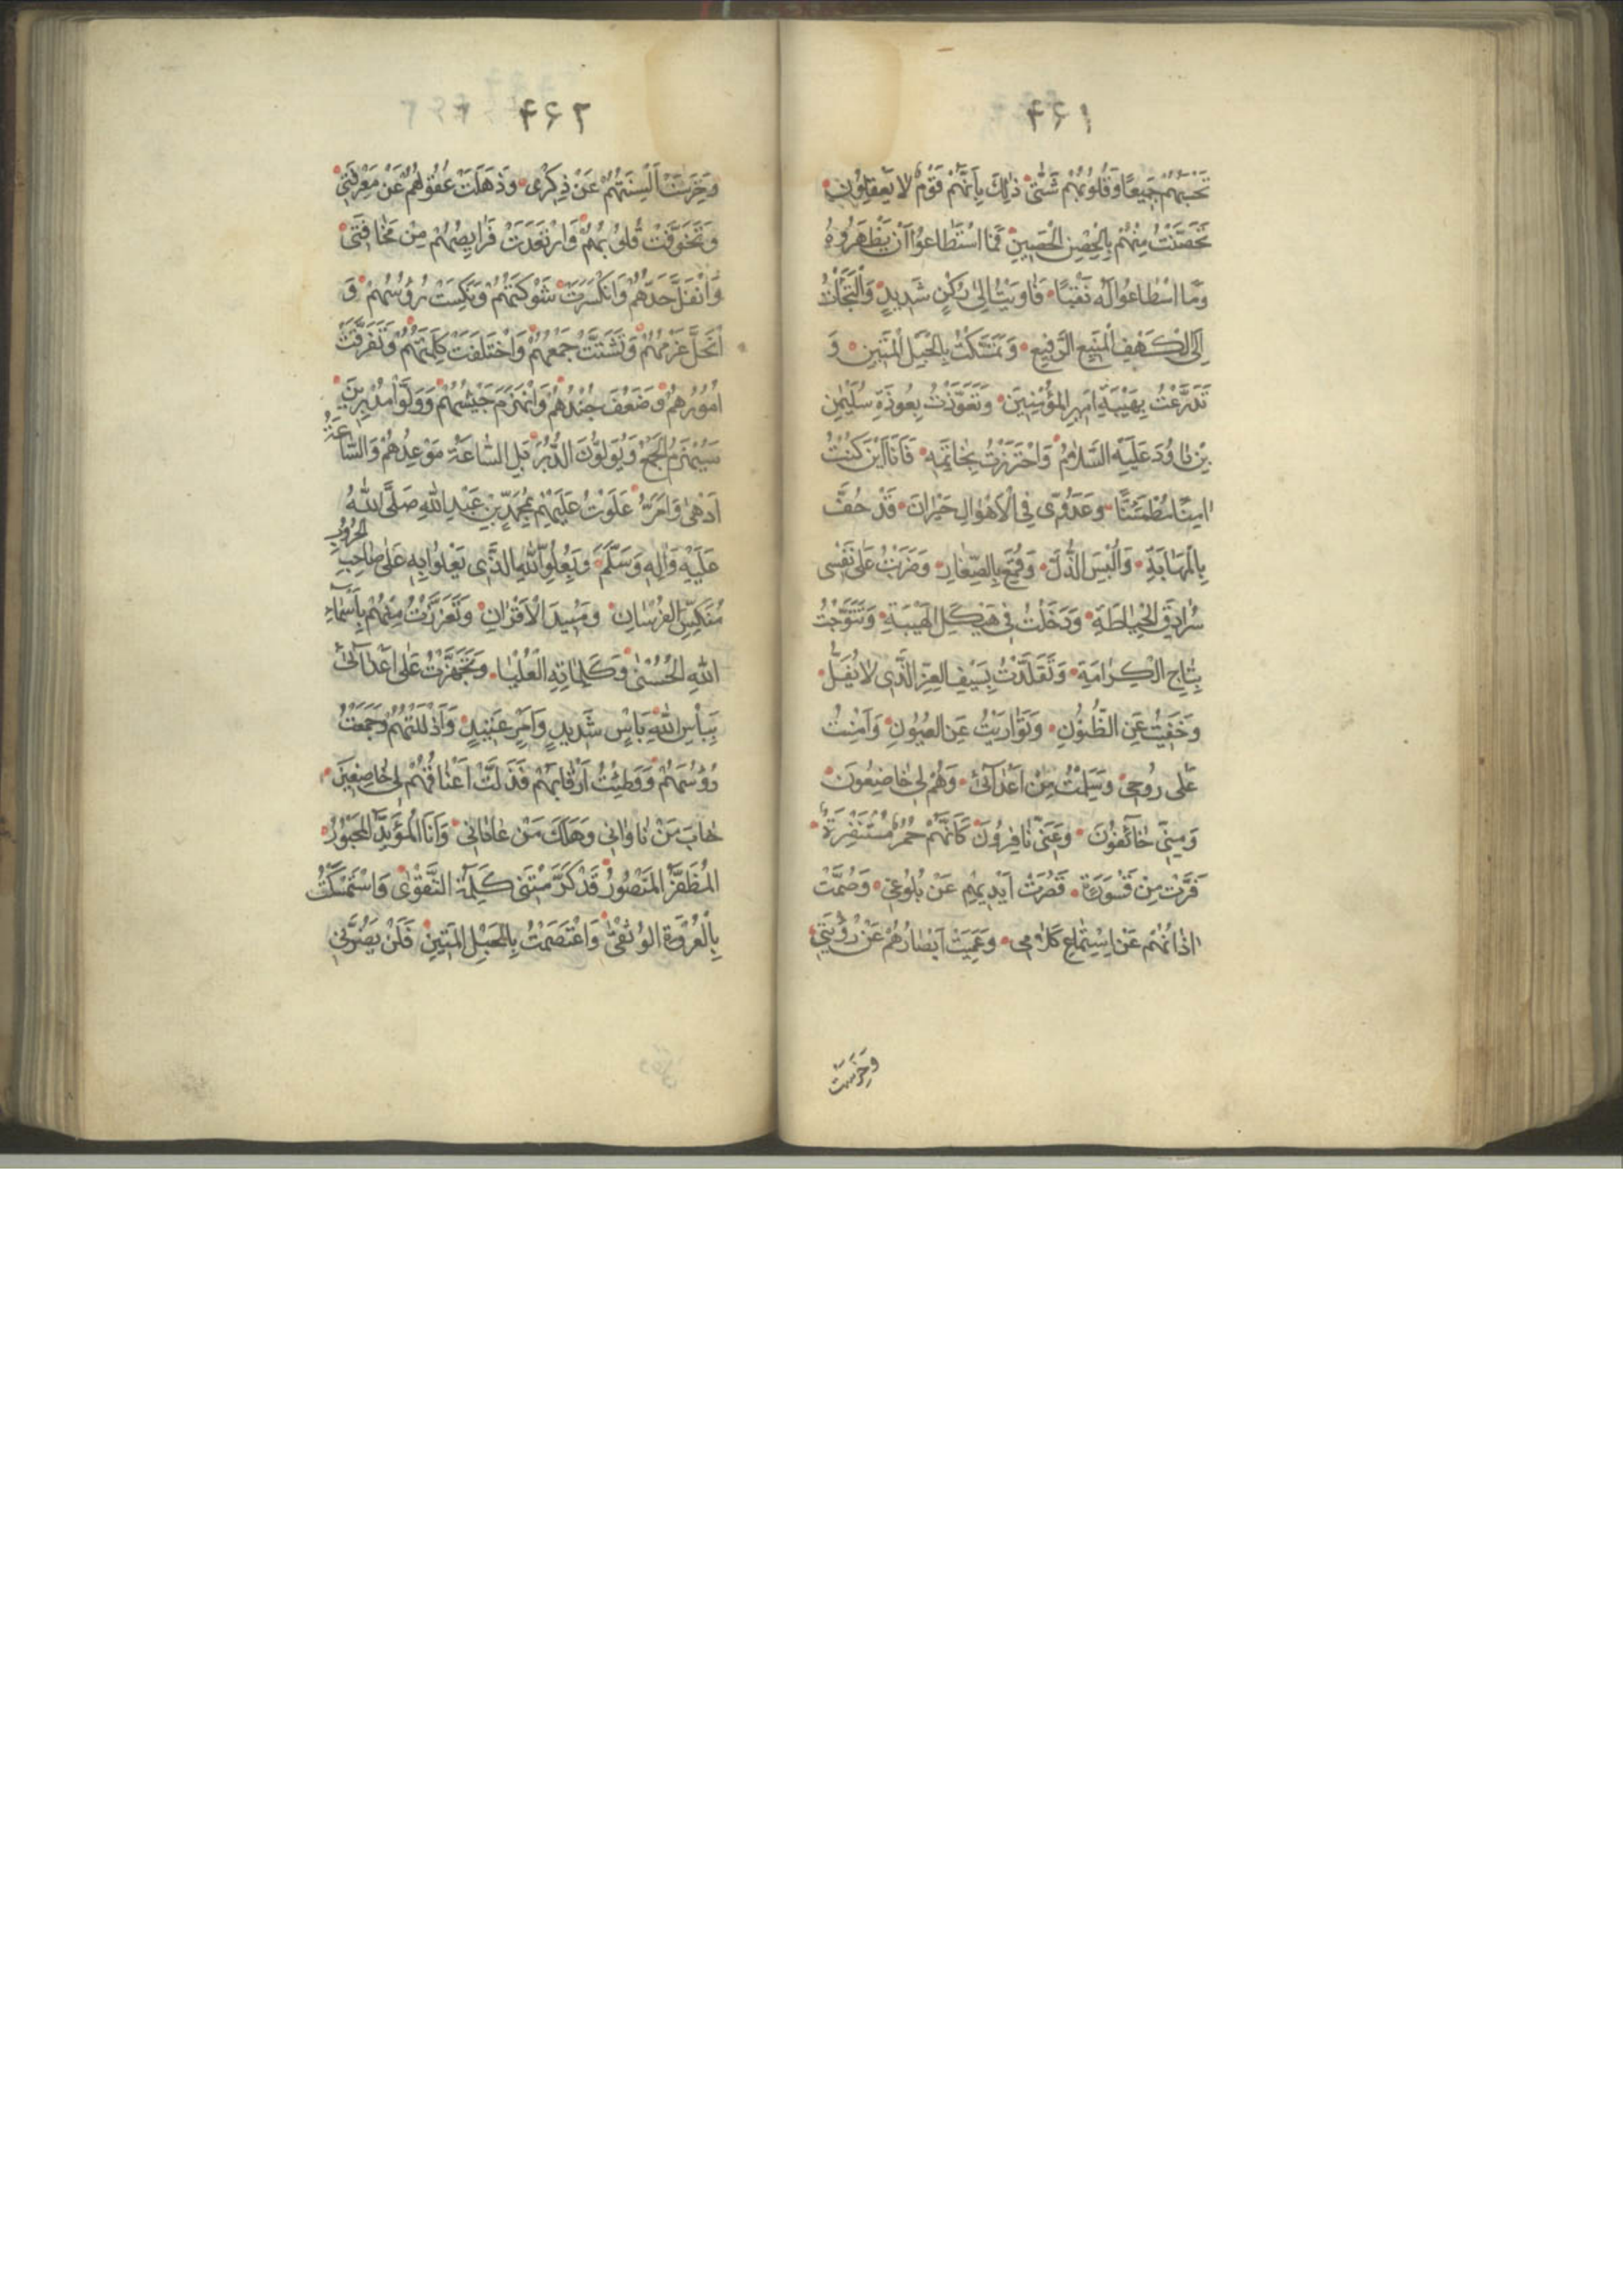 ٤٦١
تَحْسَبُهُمْ جَمِيعًا وَقُلُوبُهُمْ شَتّٰى ذٰلِكَ بِاَنَّهُمْ قَوْمٌ لا يَعْقِلُونَ
تَحَصَّنْتُ مِنْهُمْ بِالْحِصْنِ الْحَصِينِ فَمَا اسْتَطَاعُوا اَنْ يَظْهَرُوهُ
وَمَا اسْتَطَاعُوا لَهُ نَقْبًا فَاَوَيْتُ اِلىٰ رُكْنٍ شَدِيدٍ وَالْتَجَأْتُ
اِلَى الْكَهْفِ الْمَنِيعِ الرَّفِيعِ وَتَمَسَّكْتُ بِالْحَبْلِ الْمَتِينِ وَ
تَدَرَّعْتُ بِهَيْبَةِ اَمِيرِ الْمُؤْمِنِينَ وَتَعَوَّذْتُ بِعُوذَةِ سُلَيْمٰنِ
بْنِ دٰاوُدَ عَلَيْهِ السَّلٰامُ وَاحْتَرَزْتُ بِخٰاتَمِهِ فَاَنَا اَيْنَ كُنْتُ
اٰمِنًا مُطْمَئِنًّا وَعَدُوِّى فِى الْاَهْوٰالِ حَيْرٰانَ قَدْ حُفَّ
بِالْمَهٰابَةِ وَاُلْبِسَ الذُّلَّ وَقُمِعَ بِالصِّغٰارِ وَضَرَبْتُ عَلىٰ نَفْسى
سُرٰادِقَ الْحِيٰاطَةِ وَدَخَلْتُ فى هَيْكَلِ الْهَيْبَةِ وَتَتَوَّجْتُ
بِتٰاجِ الْكَرٰامَةِ وَتَقَلَّدْتُ بِسَيْفِ الْعِزِّ الَّذى لٰا يُفَلُّ
وَخَفِيتُ عَنِ الظُّنُونِ وَتَوٰارَيْتُ عَنِ الْعُيُونِ وَاَمِنْتُ
عَلى رُوحى وَسَلِمْتُ مِنْ اَعْدٰآئى وَهُمْ لى خٰاضِعُونَ
وَمِنّى خٰآئِفُونَ وَعَنّى نٰافِرُونَ كَاَنَّهُمْ حُمُرٌ مُسْتَنْفِرَةٌ
فَرَّتْ مِنْ قَسْوَرَةٍ قَصُرَتْ اَيْدِيهِمْ عَنْ بُلُوغى وَصُمَّتْ
اٰذٰانُهُمْ عَنْ اِسْتِمٰاعِ كَلٰامى وَعَمِيَتْ اَبْصٰارُهُمْ عَنْ رُؤْيَتى
وَخَرِسَتْ
٤٦٢
وَخَرِسَتْ اَلْسِنَتُهُمْ عَنْ ذِكْرى وَذَهَلَتْ عُقُولُهُمْ عَنْ مَعْرِفَتى
وَتَخَوَّفَتْ قُلُوبُهُمْ وَارْتَعَدَتْ فَرٰايِصُهُمْ مِنْ مَخٰافَتى
وَانْفَلَّ حَدُّهُمْ وَانْكَسَرَتْ شَوْكَتُهُمْ وَنُكِسَتْ رُؤُسُهُمْ وَ
انْحَلَّ عَزْمُهُمْ وَتَشَتَّتَ جَمْعُهُمْ وَاخْتَلَفَتْ كَلِمَتُهُمْ وَتَفَرَّقَتْ
اُمُورُهُمْ وَضَعُفَ جُنْدُهُمْ وَانْهَزَمَ جَيْشُهُمْ وَوَلَّوْا مُدْبِرِينَ
سَيُهْزَمُ الْجَمْعُ وَيُوَلُّونَ الدُّبُرَ بَلِ السّٰاعَةُ مَوْعِدُهُمْ وَالسّٰاعَةُ
اَدْهٰى وَاَمَرُّ عَلَوْتُ عَلَيْهِمْ بِمُحَمَّدِ بْنِ عَبْدِ اللّٰهِ صَلَّى اللّٰهُ
عَلَيْهِ وَاٰلِهِ وَسَلَّمَ وَبِعُلُوِّ اللّٰهِ الَّذى يَعْلُوا بِهِ عَلىٰ صٰاحِبِ الْحُرُوبِ
مُنَكِّسِ الْفُرْسٰانِ وَمُبِيدَ الْاَقْرٰانِ وَتَعَزَّزْتُ مِنْهُمْ بِاَسْمٰآءِ
اللّٰهِ الْحُسْنىٰ وَكَلِمٰاتِهِ الْعُلْيٰا وَتَجَهَّزْتُ عَلىٰ اَعْدٰآئى
بِبَأْسِ اللّٰهِ بَأْسٍ شَدِيدٍ وَاَمْرٍ عَتِيدٍ وَاَذْلَلْتُهُمْ وَجَمَعْتُ
رُؤُسَهُمْ وَوَطِئْتُ اَرْقٰابَهُمْ فَذَلَّتْ اَعْنٰاقُهُمْ لى خٰاضِعِينَ
خٰابَ مَنْ نٰاوٰانى وَهَلَكَ مَنْ عٰادٰانى وَاَنَا الْمُؤَيَّدُ الْمَحْبُورُ
الْمُظَفَّرُ الْمَنْصُورُ قَدْ كَرَّمَتْنى كَلِمَةُ التَّقْوٰى وَاسْتَمْسَكْتُ
بِالْعُرْوَةِ الْوُثْقىٰ وَاعْتَصَمْتُ بِالْحَبْلِ الْمَتِينِ فَلَنْ يَضُرَّنى